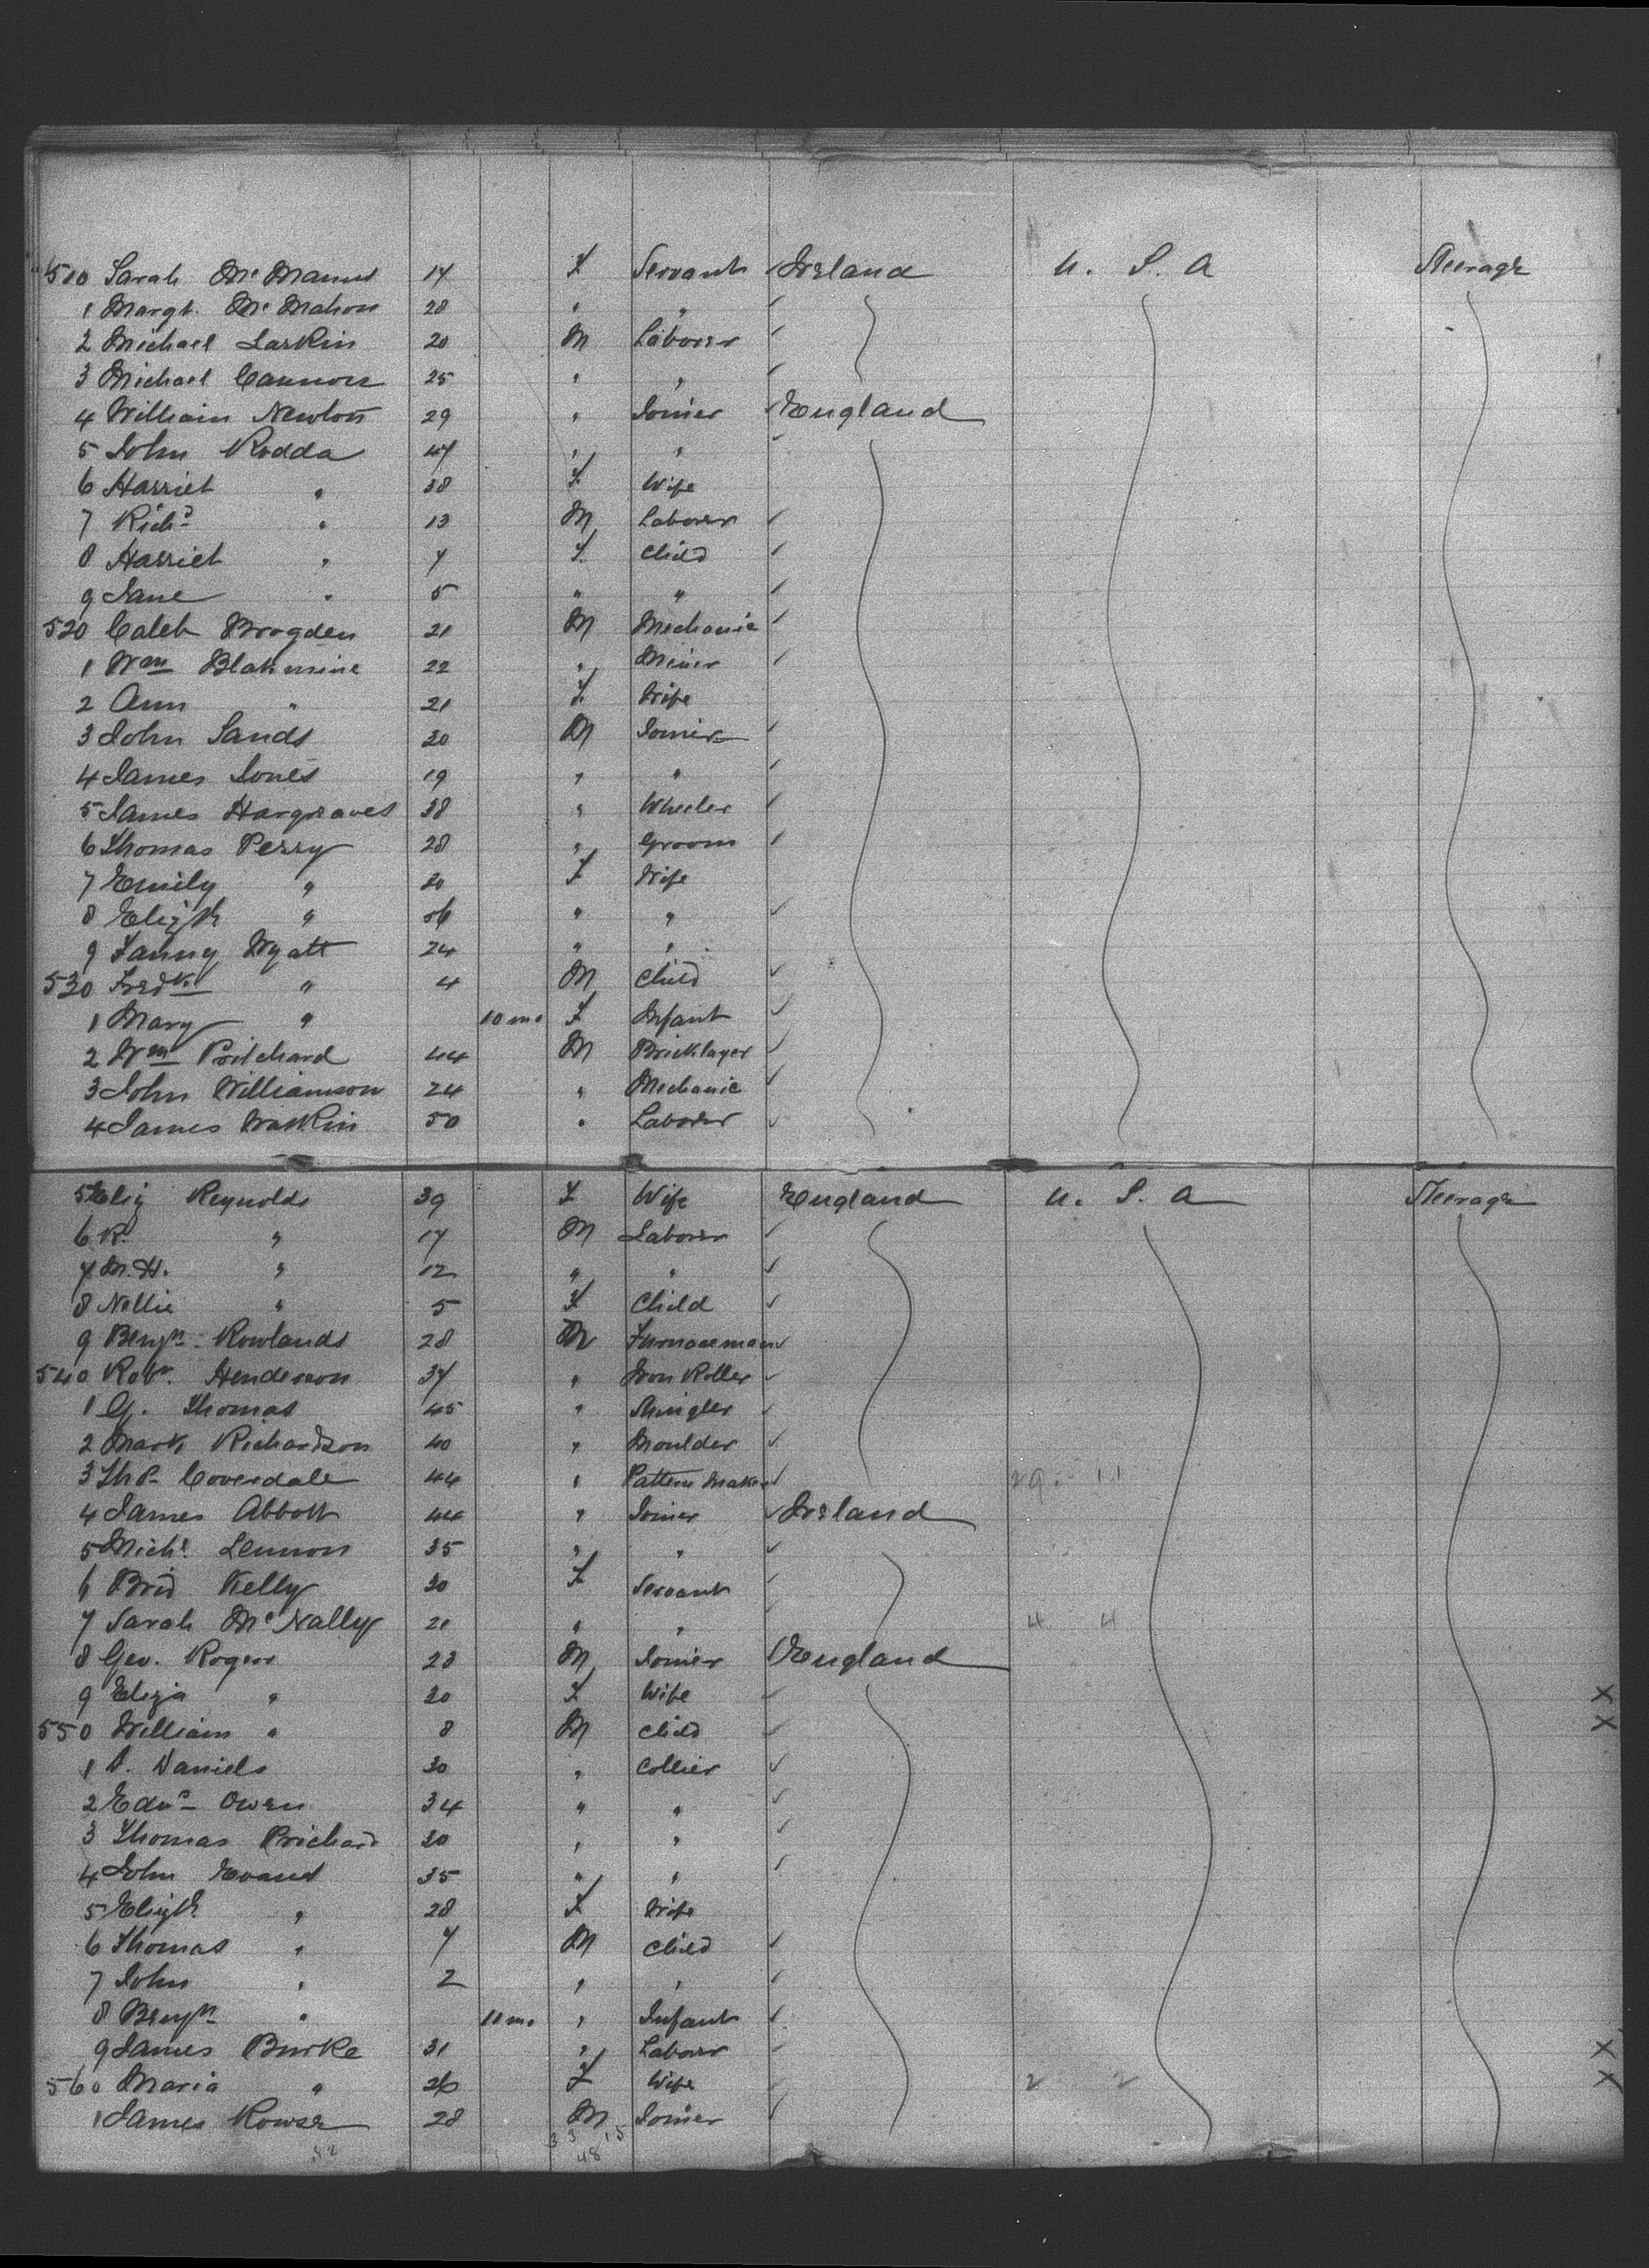 510 Sarah McManus 17 F Servant Ireland U. S. A Steerage
1 Margt. McMahon 28 " "
2 Michael Larkin 20 M Laborer
3 Michael Cannon 25 " "
4 William Newton 29 " Joiner England
5 John Rodda 47 " "
6 Harriet " 38 F Wife
7 Richd " 13 M Laborer
8 Harriet " 7 F. Child
9 Jane " 5 " "
520 Caleb Brogden 21 M Mechanic
1 Wm Blakmine 22 " Miner
2 Ann " 21 F. Wife
3 John Sands 30 M Joiner
4 James Jones 19 " "
5 James Hargraves 38 " Wheeler
6 Thomas Perry 28 " Groom
7 Emily " 30 F Wife
8 Elizth " 56 " "
9 Fanny Wyatt 24 " "
530 Fredk " 4 M Child
1 Mary " 10 mo F Infant
2 Wm Pritchard 44 M Bricklayer
3 John Williamson 24 " Mechanic
4 James Watkin 50 " Laborer
5 Eliz Reynolds 39 F Wife England U. S. A Steerage
6 R. " 17 M Laborer
7 M. H. " 12 " "
8 Nellie " 5 F Child
9 Benjn. Rowlands 28 M Furnaceman
540 Robt. Henderson 37 " Iron Roller
1 G. Thomas 45 " Shingler
2 Mark Richardson 40 " Moulder
3 Thos Coverdale 44 " Pattern Maker 29. 11
4 James Abbott 44 " Joiner Ireland
5 Michl. Lennon 35 " "
6 Brid Kelly 30 F Servant
7 Sarah McNally 21 " " 4 4
8 Geo. Rogers 23 M Joiner England
9 Eliza " 30 F Wife X
550 William " 8 M Child X
1 D. Daniels 30 " Collier
2 Edwd Owen 34 " "
3 Thomas Prichard 30 " "
4 John Evans 35 " "
5 Elizth. " 28 F Wife
6 Thomas " 7 M Child
7 John " 2 " "
8 Benjn " 11 mo " Infant
9 James Burke 31 " Laborer X
560 Maria " 26 F Wife 2 2 X
1 James Rowse 28 M Joiner
52 33 15
48